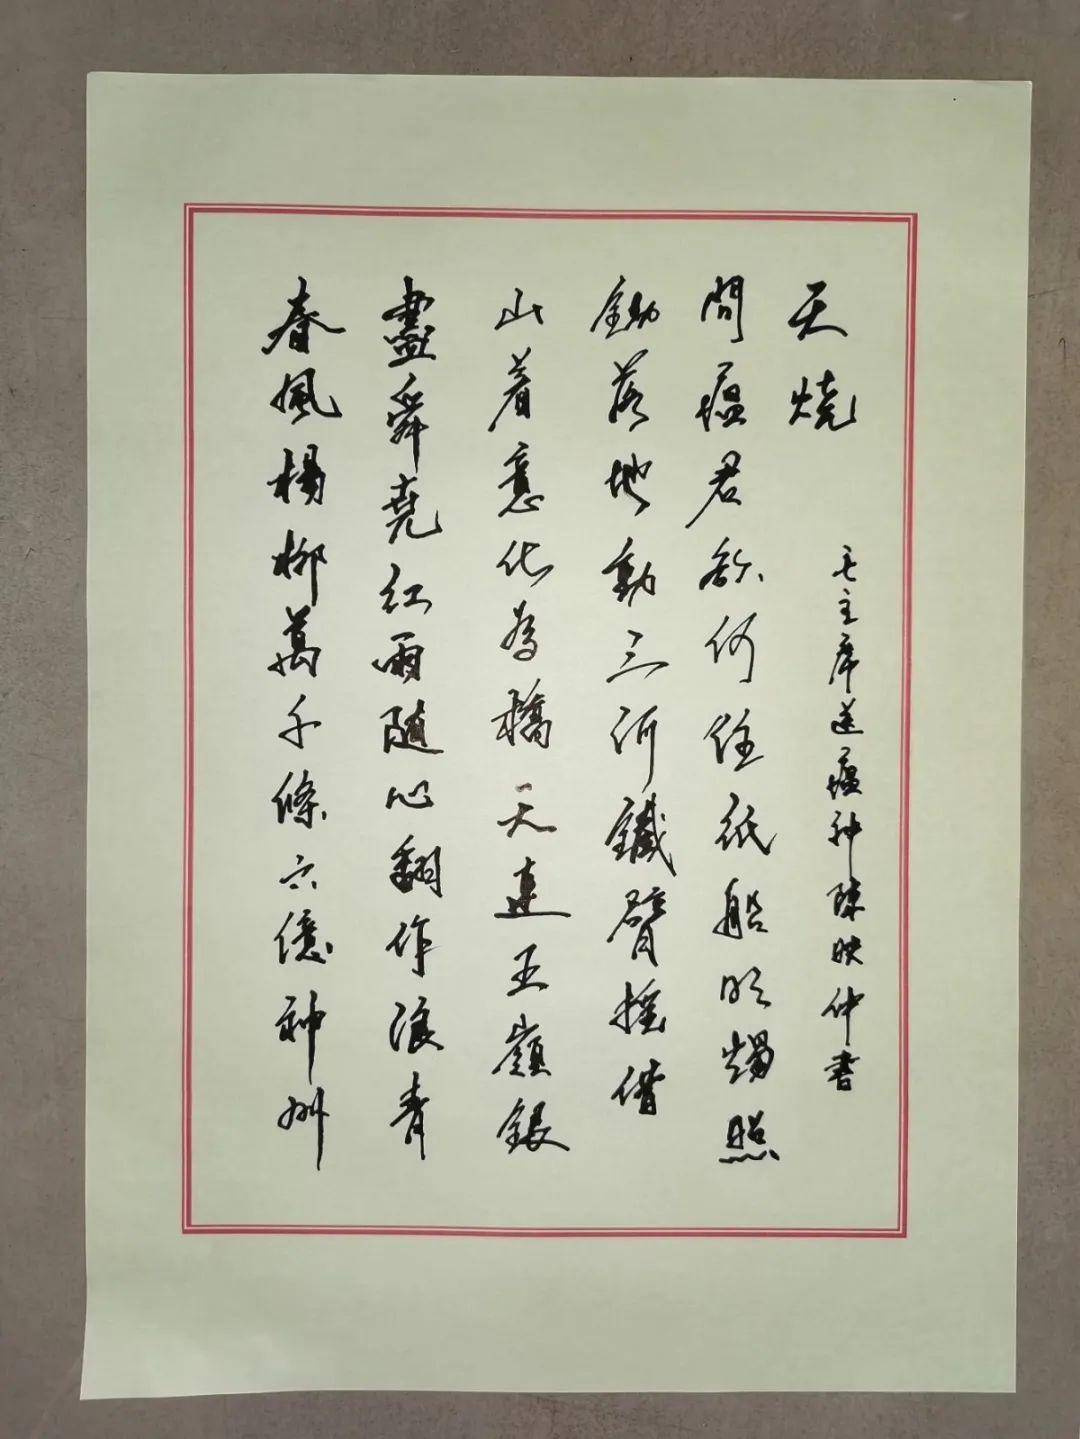 春風楊柳萬千條六億神州
盡舜堯紅雨随心翻作浪青
山着意化為橋天連五嶺銀
鋤落地動三河鐵臂搖借
問瘟君欲何往紙船明燭照
天烧
毛主席送瘟神陳映仲書